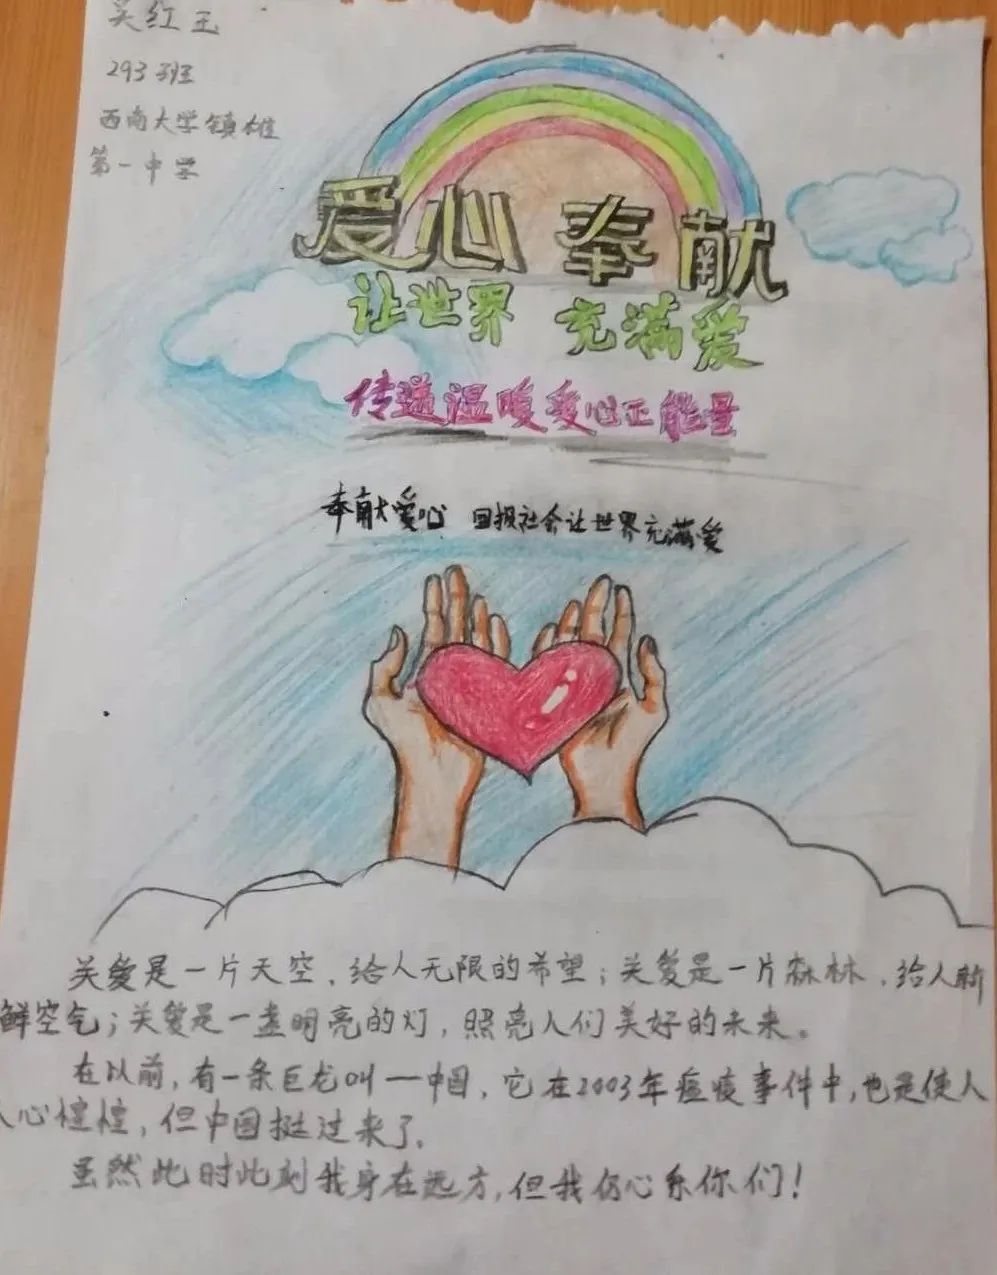 吴红玉
293班
西南大学镇雄
第一中学
爱心 奉献
让世界 充满爱
传递温暖爱心正能量
奉献爱心 回报社会让世界充满爱
关爱是一片天空，给人无限的希望；关爱是一片森林，给人新
鲜空气；关爱是一盏明亮的灯，照亮人们美好的未来。
在以前，有一条巨龙叫—中国，它在2003年瘟疫事件中，也是使人
人心惶惶，但中国挺过来了。
虽然此时此刻我身在远方，但我仍心系你们！